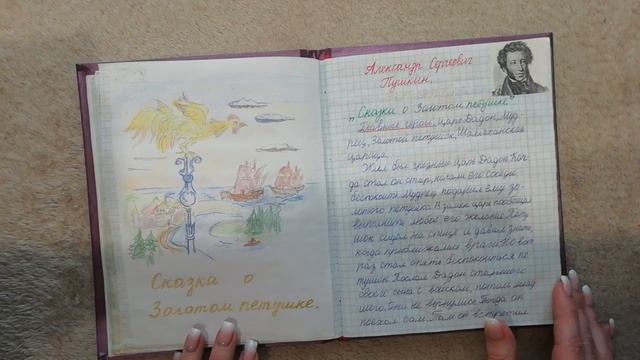 Сказка о
Золотом петушке.
Александр Сергеевич
Пушкин.
„Сказка о Золотом петушке"
Главные герои: царь Дадон, Муд-
рец, Золотой петушок, Шамаханская
царица.
Жил был грозный царь Дадон. Ког-
да стал он стар, начали его соседи
беспокоить. Мудрец подарил ему зо-
лотого петушка. Взамен царь пообещал
выполнить любое его желание. Пету-
шок сидел на спице и давал знать,
когда приближались враги. Но вот
раз стал опять беспокоиться пе-
тушок. Послал Дадон старшего
своего сына с войском, потом млад
шего. Они не вернулись. Тогда он
поехал сам. Там он встретил